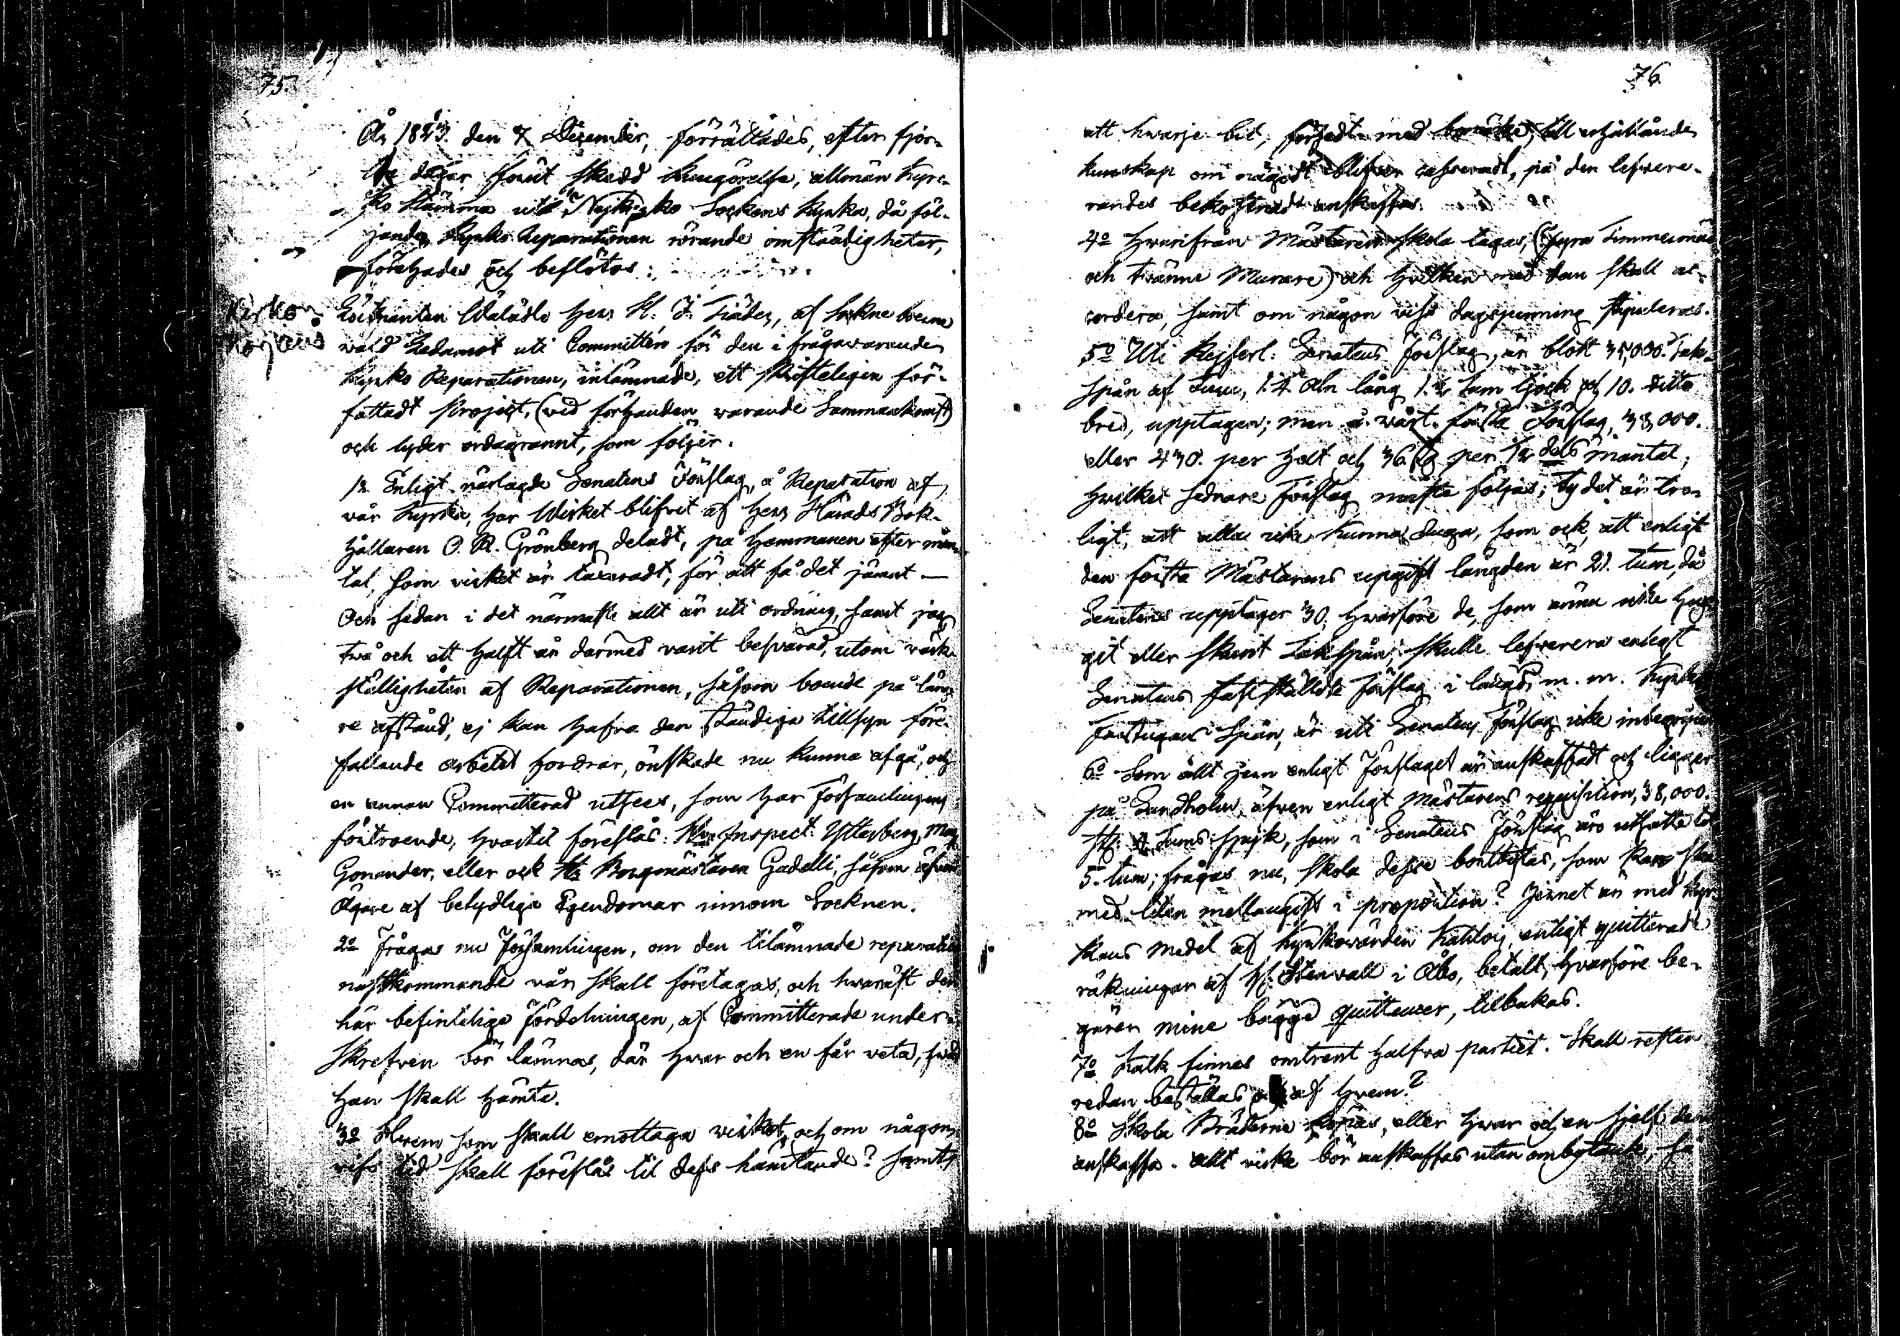 75.
År 1823 den 7 December, förrättades, efter fjor-
ton dagar förut skedd kungörelse, allmän Kyrc-
ko Stämma uti Nykyrko Sockens Kyrka, då föl-
jande Kyrko Reparationen rörande omständigheter,
företogades och beslötos:
Kirkon
korjaus
Wälädle Herr H. J. Träder, af Sockneboerne
vald Ledamot uti Committén för den i frågavarande
Kyrko Reparationen, inlämnade, ett skriftelegen för-
fattadt Project, (vid förhanden varande Sammankomst)
och lyder ordagrannt, som följer.
1o Enligt närlagde Senatens Förslag, å Reparation af
vår Kyrka, har Wirket blifvit af Herr Härads Bok-
hållaren O. R. Grönberg deladt, på Hemmanen efter man-
tal, som virket är taxeradt, för att få det jämnt —
Och sedan i det närmaste allt är uti ordning, samt jag
två och ett halft år darmed varit besvärad, utom värk-
ställigheten af Reparationen, såsom boende på läng-
re afstånd, ej kan hafva den ständiga tillsyn före-
fallande arbetet fordrar, önskade nu kunna afgå, och
en annan Committerad utses, som har Församlingens
förtroende, hvartil föreslås Hr Inspect. Ytterberg, Mag
Gonander, eller ock Hr Borgmästaren Gadelli, såsom äfven
Ägare af betydliga Egendomar innom Socknen.
2o Frågas nu Församlingen, om den tilämnade reparation
nästkommande vår skall företagas, och hwaräst den
här befintelige Fördelningen, af Committerade under-
skrefven bör lämnas, där hvar och en får veta, hvad
han skall hämta.
3o Hvem som skall emottaga virket, och om någon
viss tid skall föreslås til dess hämtande? samt
76
att hwarje bit, försedt med bomärke, till erhållande
kunskap om något blifver casseradt, på den lefvere-
randes bekostnad anskaffas.
4o Hvarifrån Mästaren skola tagas, (fyra Timmermän
och tvänne Murare) och hvilken med dem skall ac-
cordera samt om någon viss dagspenning stipuleras.
5o Uti Kejserl: Senatens Förslag, är blott 35000 Tak-
spån af Furu, 1.4 Aln lång 1.2 tum tjock och 10. ditto
bred, upptagen; men å vårt första Förslag, 38,000.
eller 430. per helt och 36 per 1/12 dels mantal;
hvilket sednare Förslag måste följas; ty det är tro-
ligt, att alla icke kunna duga, som ock, att enligt
den första Mästarens uppgift längden är 21. tum, då
Senatens upptager 30, hvarföre de, som ännu icke hug-
git eller skurit Takspån, skulle lefverera enligt
Senatens fastställde Förslag i längd m. m. Kyrko
Farstugans Spån, är uti Senatens Förslag icke inbegripen
6o Som allt jern enligt Förslaget är anskaffadt och ligger
på Sandholm, äfven enligt Mästarens requisition, 38,000.
St: 4 Tums spik, som i Senatens Förslag äro utsatte til
5. tum; frågas nu, skola desse bortbytas, som kan ske
med liten mellangift i proportion? Jernet är med Kyr-
kans Medel af Kyrkovärden Kahiloij, enligt quitterade
räkningar af H: Stenvall i Åbo, betalt, hvarföre be-
gärer mine bägge quittencer, tilbakas.
7o Kalk finnes omtrent halfva partiet. Skall resten
redan beställas och af hvem?
8o Skola Bräderne köpas, eller hvar och en sjelf dem
anskaffa. Allt virke bör anskaffas utan ombytande, så